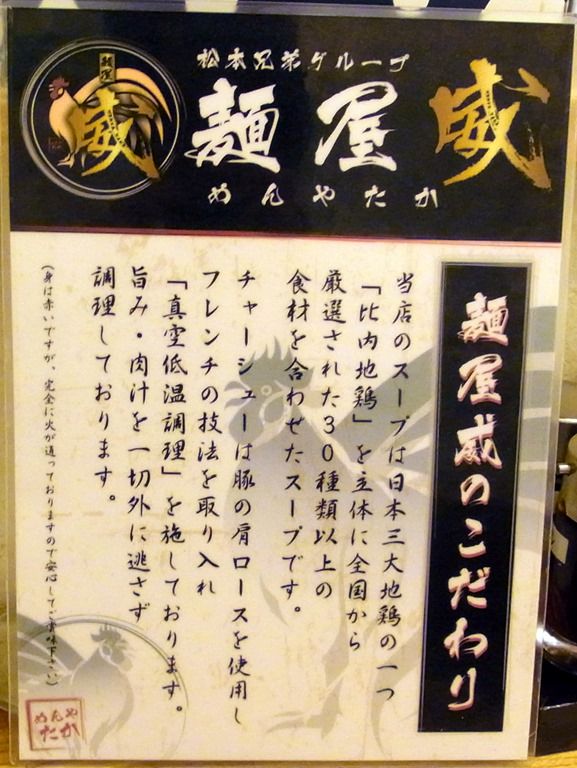 麺屋
威
松本兄弟グループ
麺屋 威
めんやたか
麺屋威のこだわり
当店のスープは日本三大地鶏の一つ
「比内地鶏」を主体に全国から
厳選された30種類以上の
食材を合わせたスープです。
チャーシューは豚の肩ロースを使用し
フレンチの技法を取り入れ
「真空低温調理」を施しております。
旨み・肉汁を一切外に逃さず
調理しております。
(身は赤いですが、完全に火が通っておりますので安心してご賞味下さい)
めんや
たか